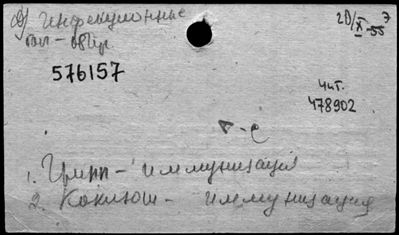 инфекционные
20/X-55
576157
чит.
478902
1. Грипп - иммунизация
2. Коклюш - иммунизация